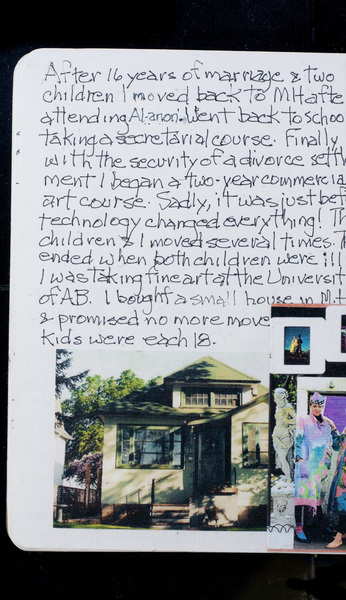 After 16 years of marriage & two
children I moved back to MH afte
attending Al-anon. Went back to schoo
taking a secretarial course. Finally
with the security of a divorce settl
ment I began a two-year commercia
art course. Sadly, it was just bef
technology changed everything! Th
children & I moved several times. T
ended when both children were ill
I was taking fine art at the Universit
of AB. I bought a small house in M.H
& promised no more move
kids were each 18.